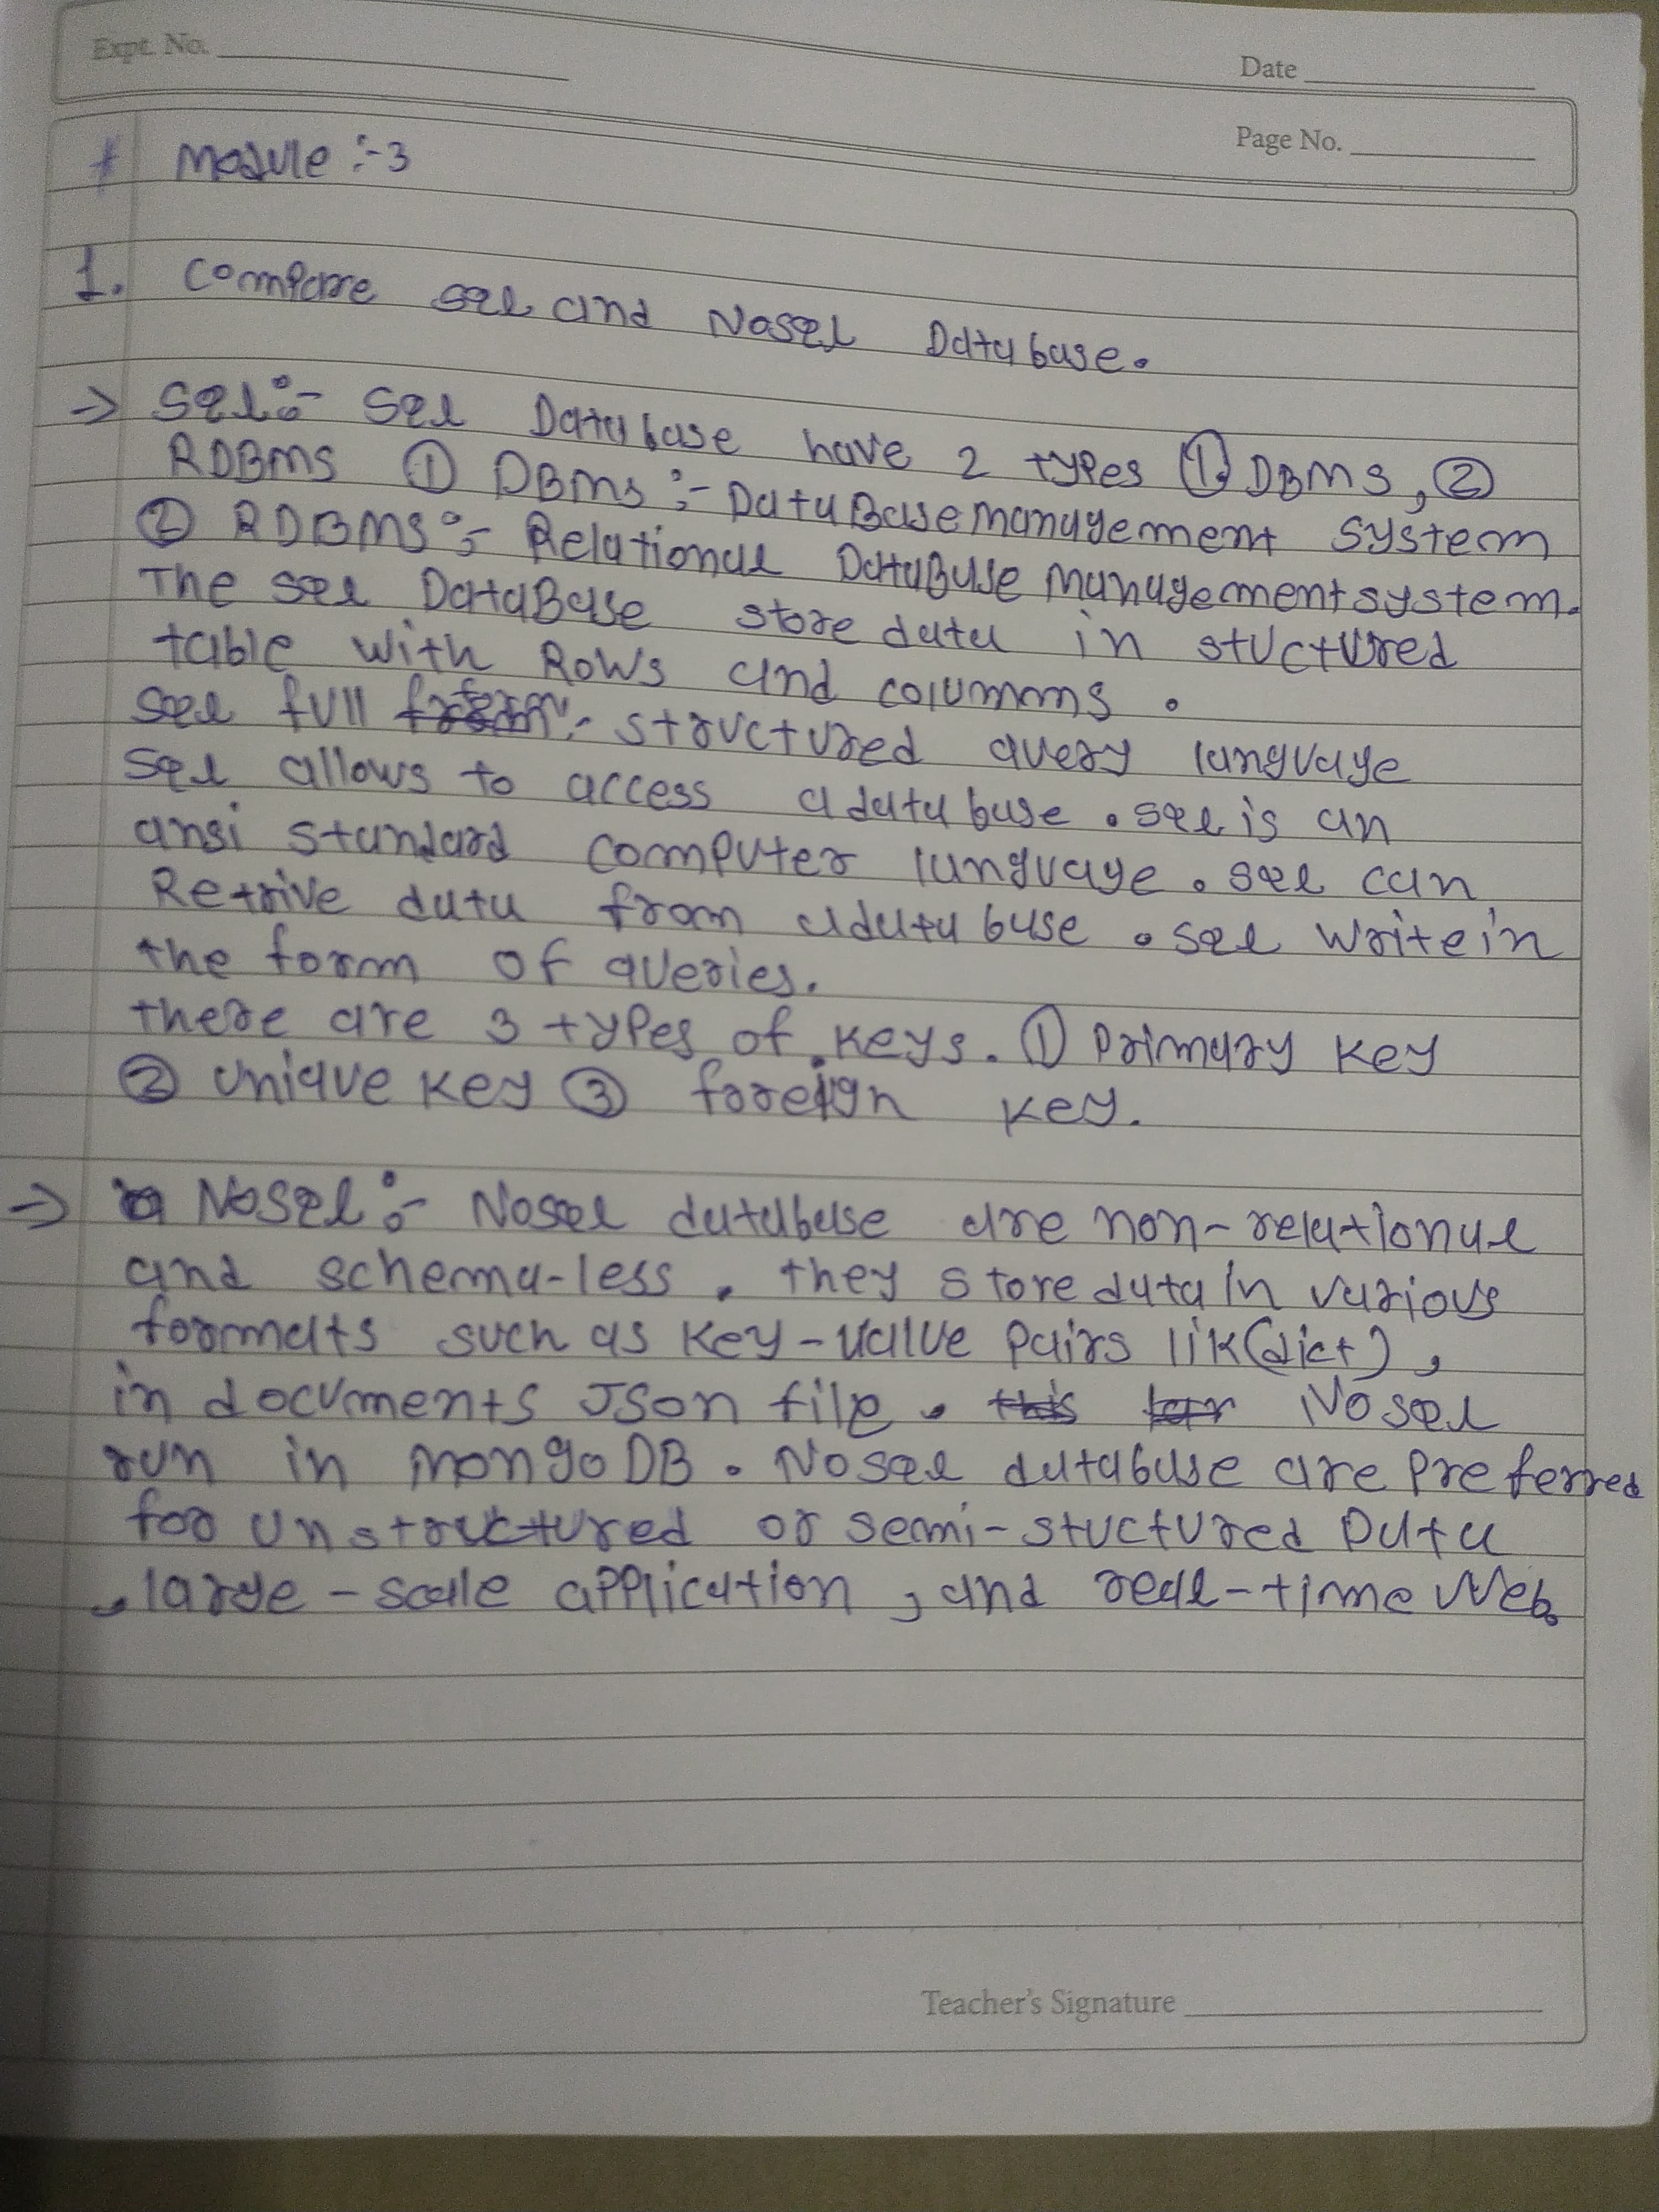 Expt. No.
Date
Page No.
# Module :- 3
1. Compare sql and Nosql Database.
→ Sql :- Sql Database have 2 types ① DBMS, ②
RDBMS ① DBMS :- DataBase management system
② RDBMS :- Relational DataBase Management system.
The sql DataBase store data in stuctured
table with Rows and columms .
sql full form :- structured query language
Sql allows to access a database . sql is an
ansi standard computer language . sql can
Retrive data from a database . sql write in
the form of queries.
there are 3 types of keys. ① Primary key
② unique key ③ foreign key.
→ Nosql :- Nosql database are non-relational
and schema-less . they store data in various
formats such as key-value pairs lik(dict) ,
in documents Json file . this Nosql
run in mongoDB . Nosql database are preferred
for unstructured or semi-stuctured Data
, large-scale application , and real-time Web.
Teacher's Signature